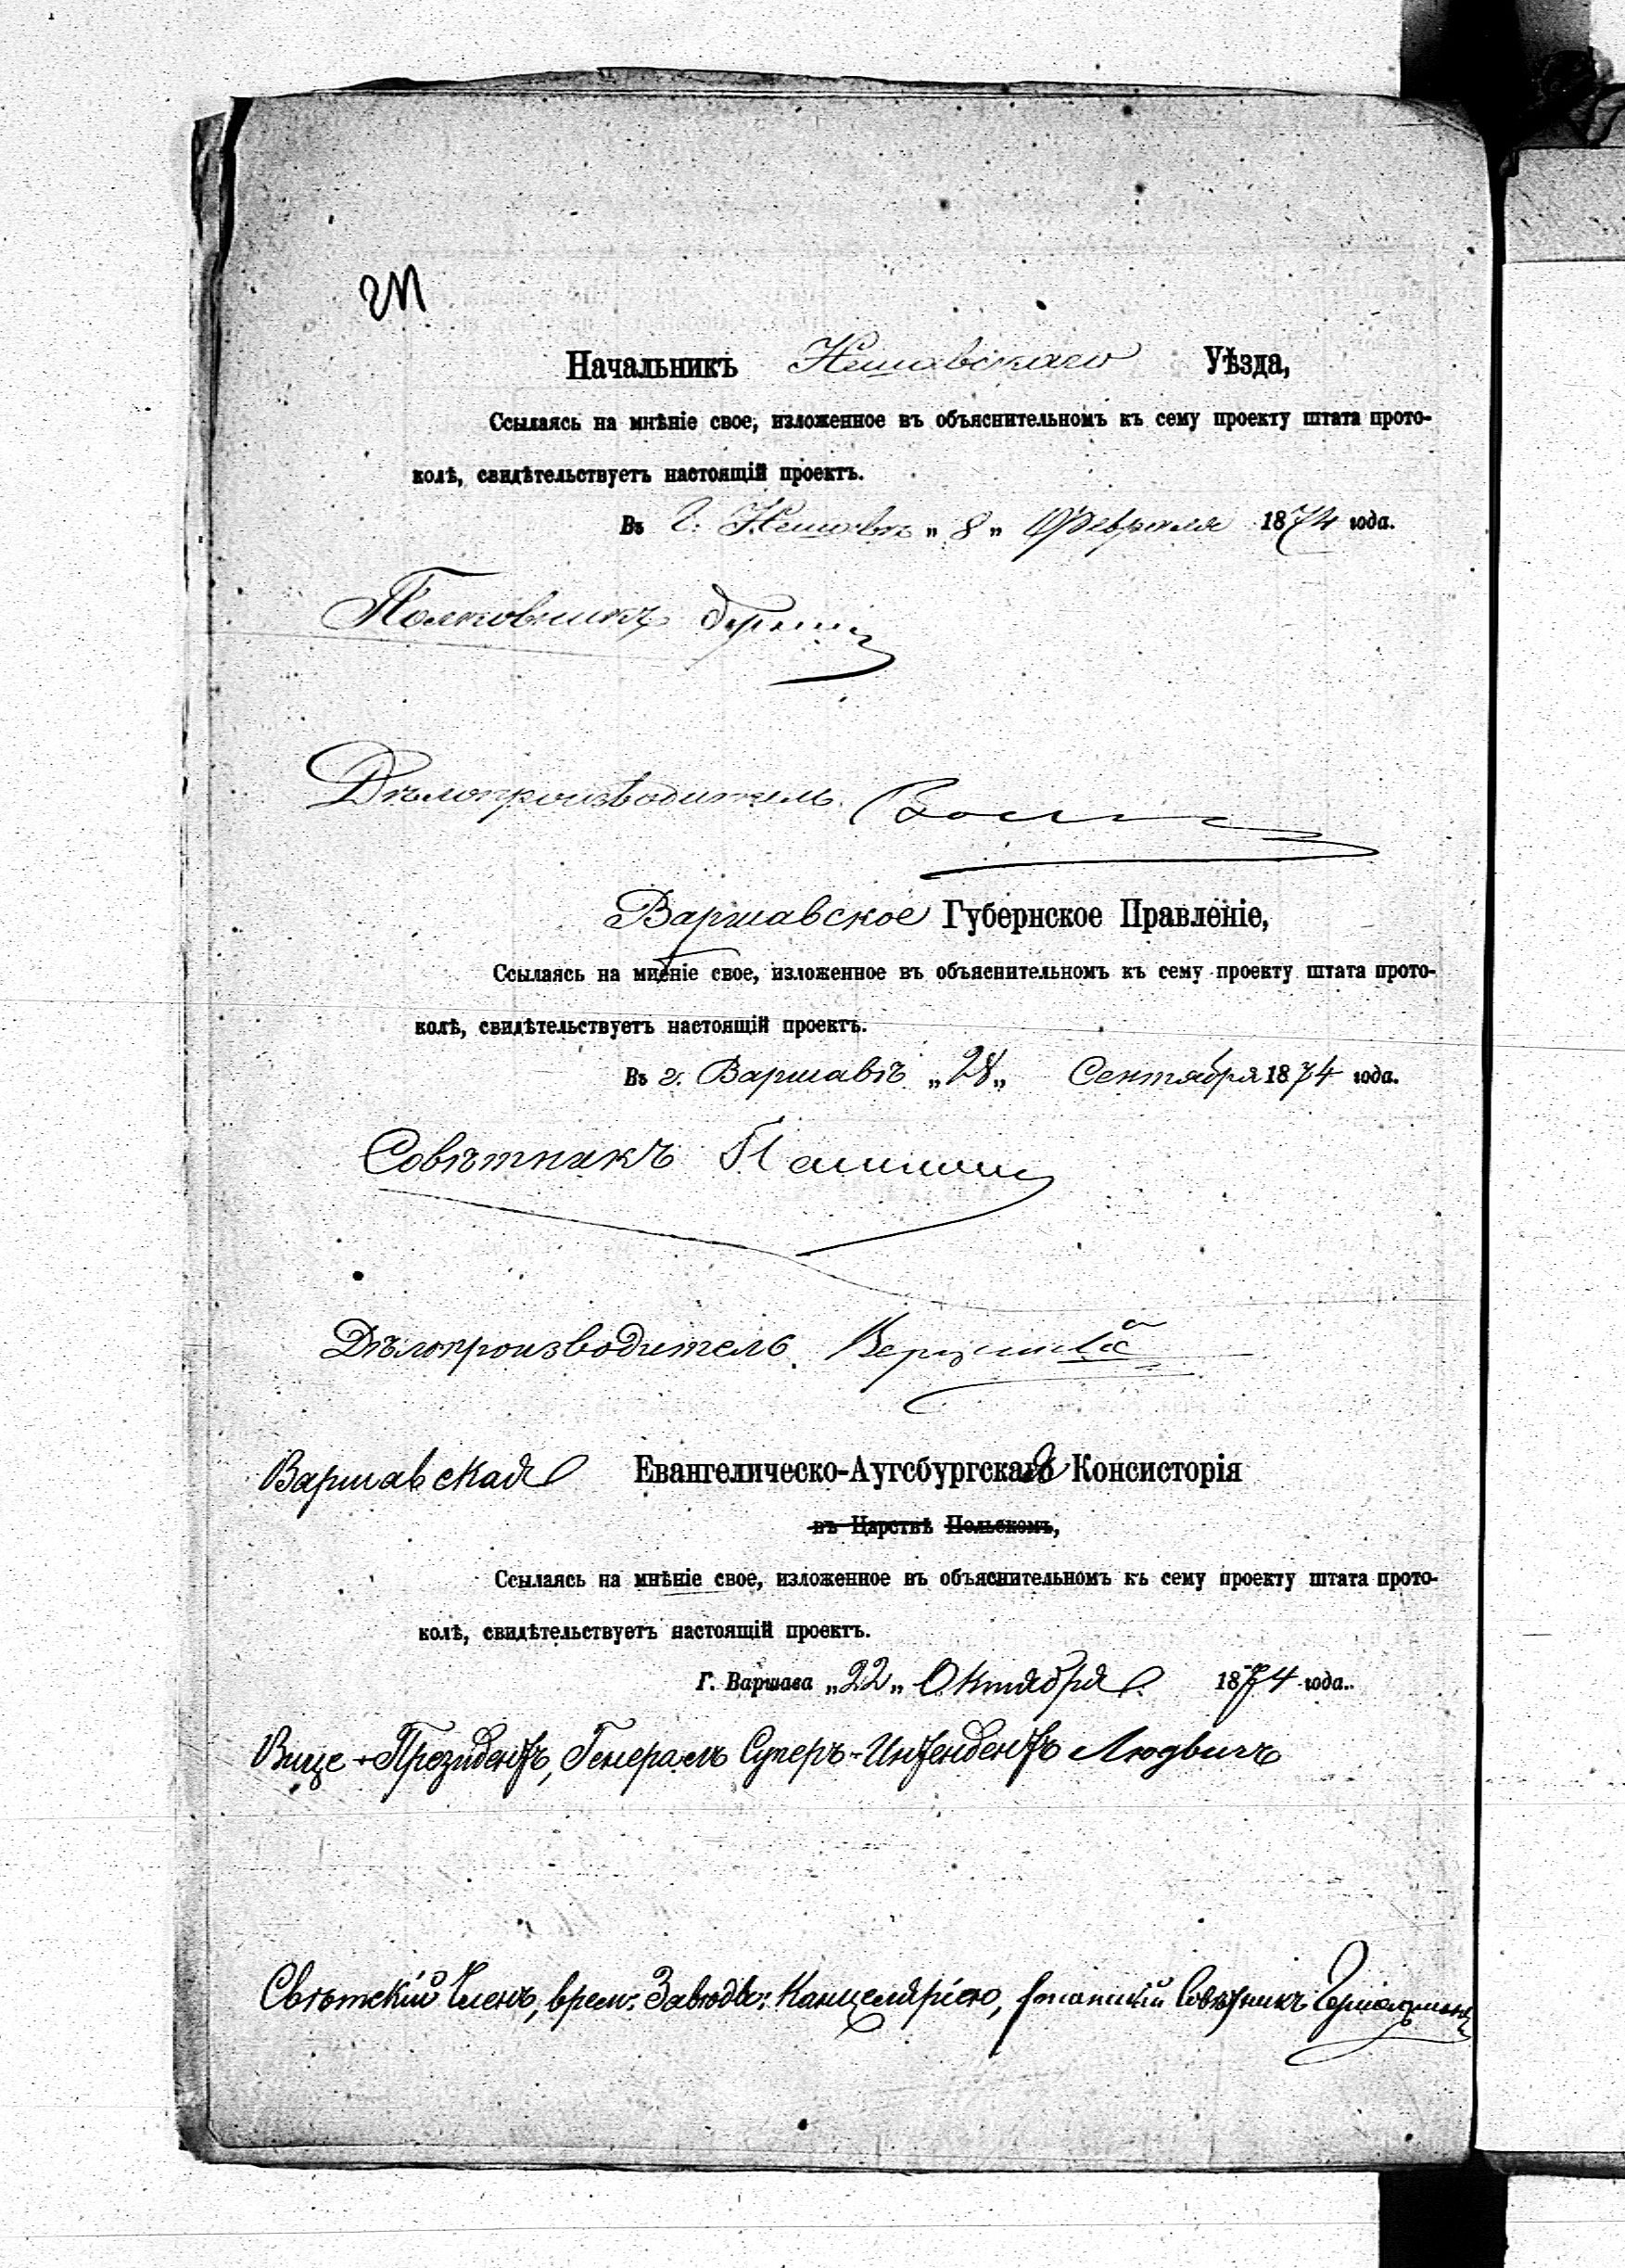 Начальникъ Нешавскаго Уѣзда,
Ссылаясь на мнѣніе свое, изложенное въ объяснительномъ къ сему проекту штата прото-
колѣ, свидѣтельствуетъ настоящій проектъ.
Въ г. Нешавѣ „ 8 „ Февраля 1874 года.
Полковникъ
Дѣлопроизводитель
Варшавское Губернское Правленіе,
Ссылаясь на мнѣніе свое, изложенное въ объяснительномъ къ сему проекту штата прото-
колѣ, свидѣтельствуетъ настоящій проектъ.
Въ г. Варшавѣ „28„ Сентября 1874 года.
Совѣтникъ
Дѣлопроизводитель
Варшавская Евангелическо-Аугсбургская Консисторія
въ Царствѣ Польскомъ,
Ссылаясь на мнѣніе свое, изложенное въ объяснительномъ къ сему проекту штата прото-
колѣ, свидѣтельствуетъ настоящій проектъ.
Г. Варшава „22„ Октября 1874 года.
Вице-Президентъ, Генералъ Суперъ-Интендентъ Людвигъ
Свѣтскій Членъ, врем: Завѣдв: Канцеляріею, Совѣтникъ